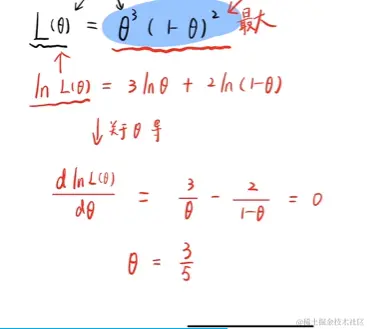 L(θ) = θ³ (1-θ)² 最大
ln L(θ) = 3 lnθ + 2 ln(1-θ)
↓ 关于 θ 导
d ln L(θ) / dθ = 3/θ - 2/1-θ = 0
θ = 3/5
@稀土掘金技术社区